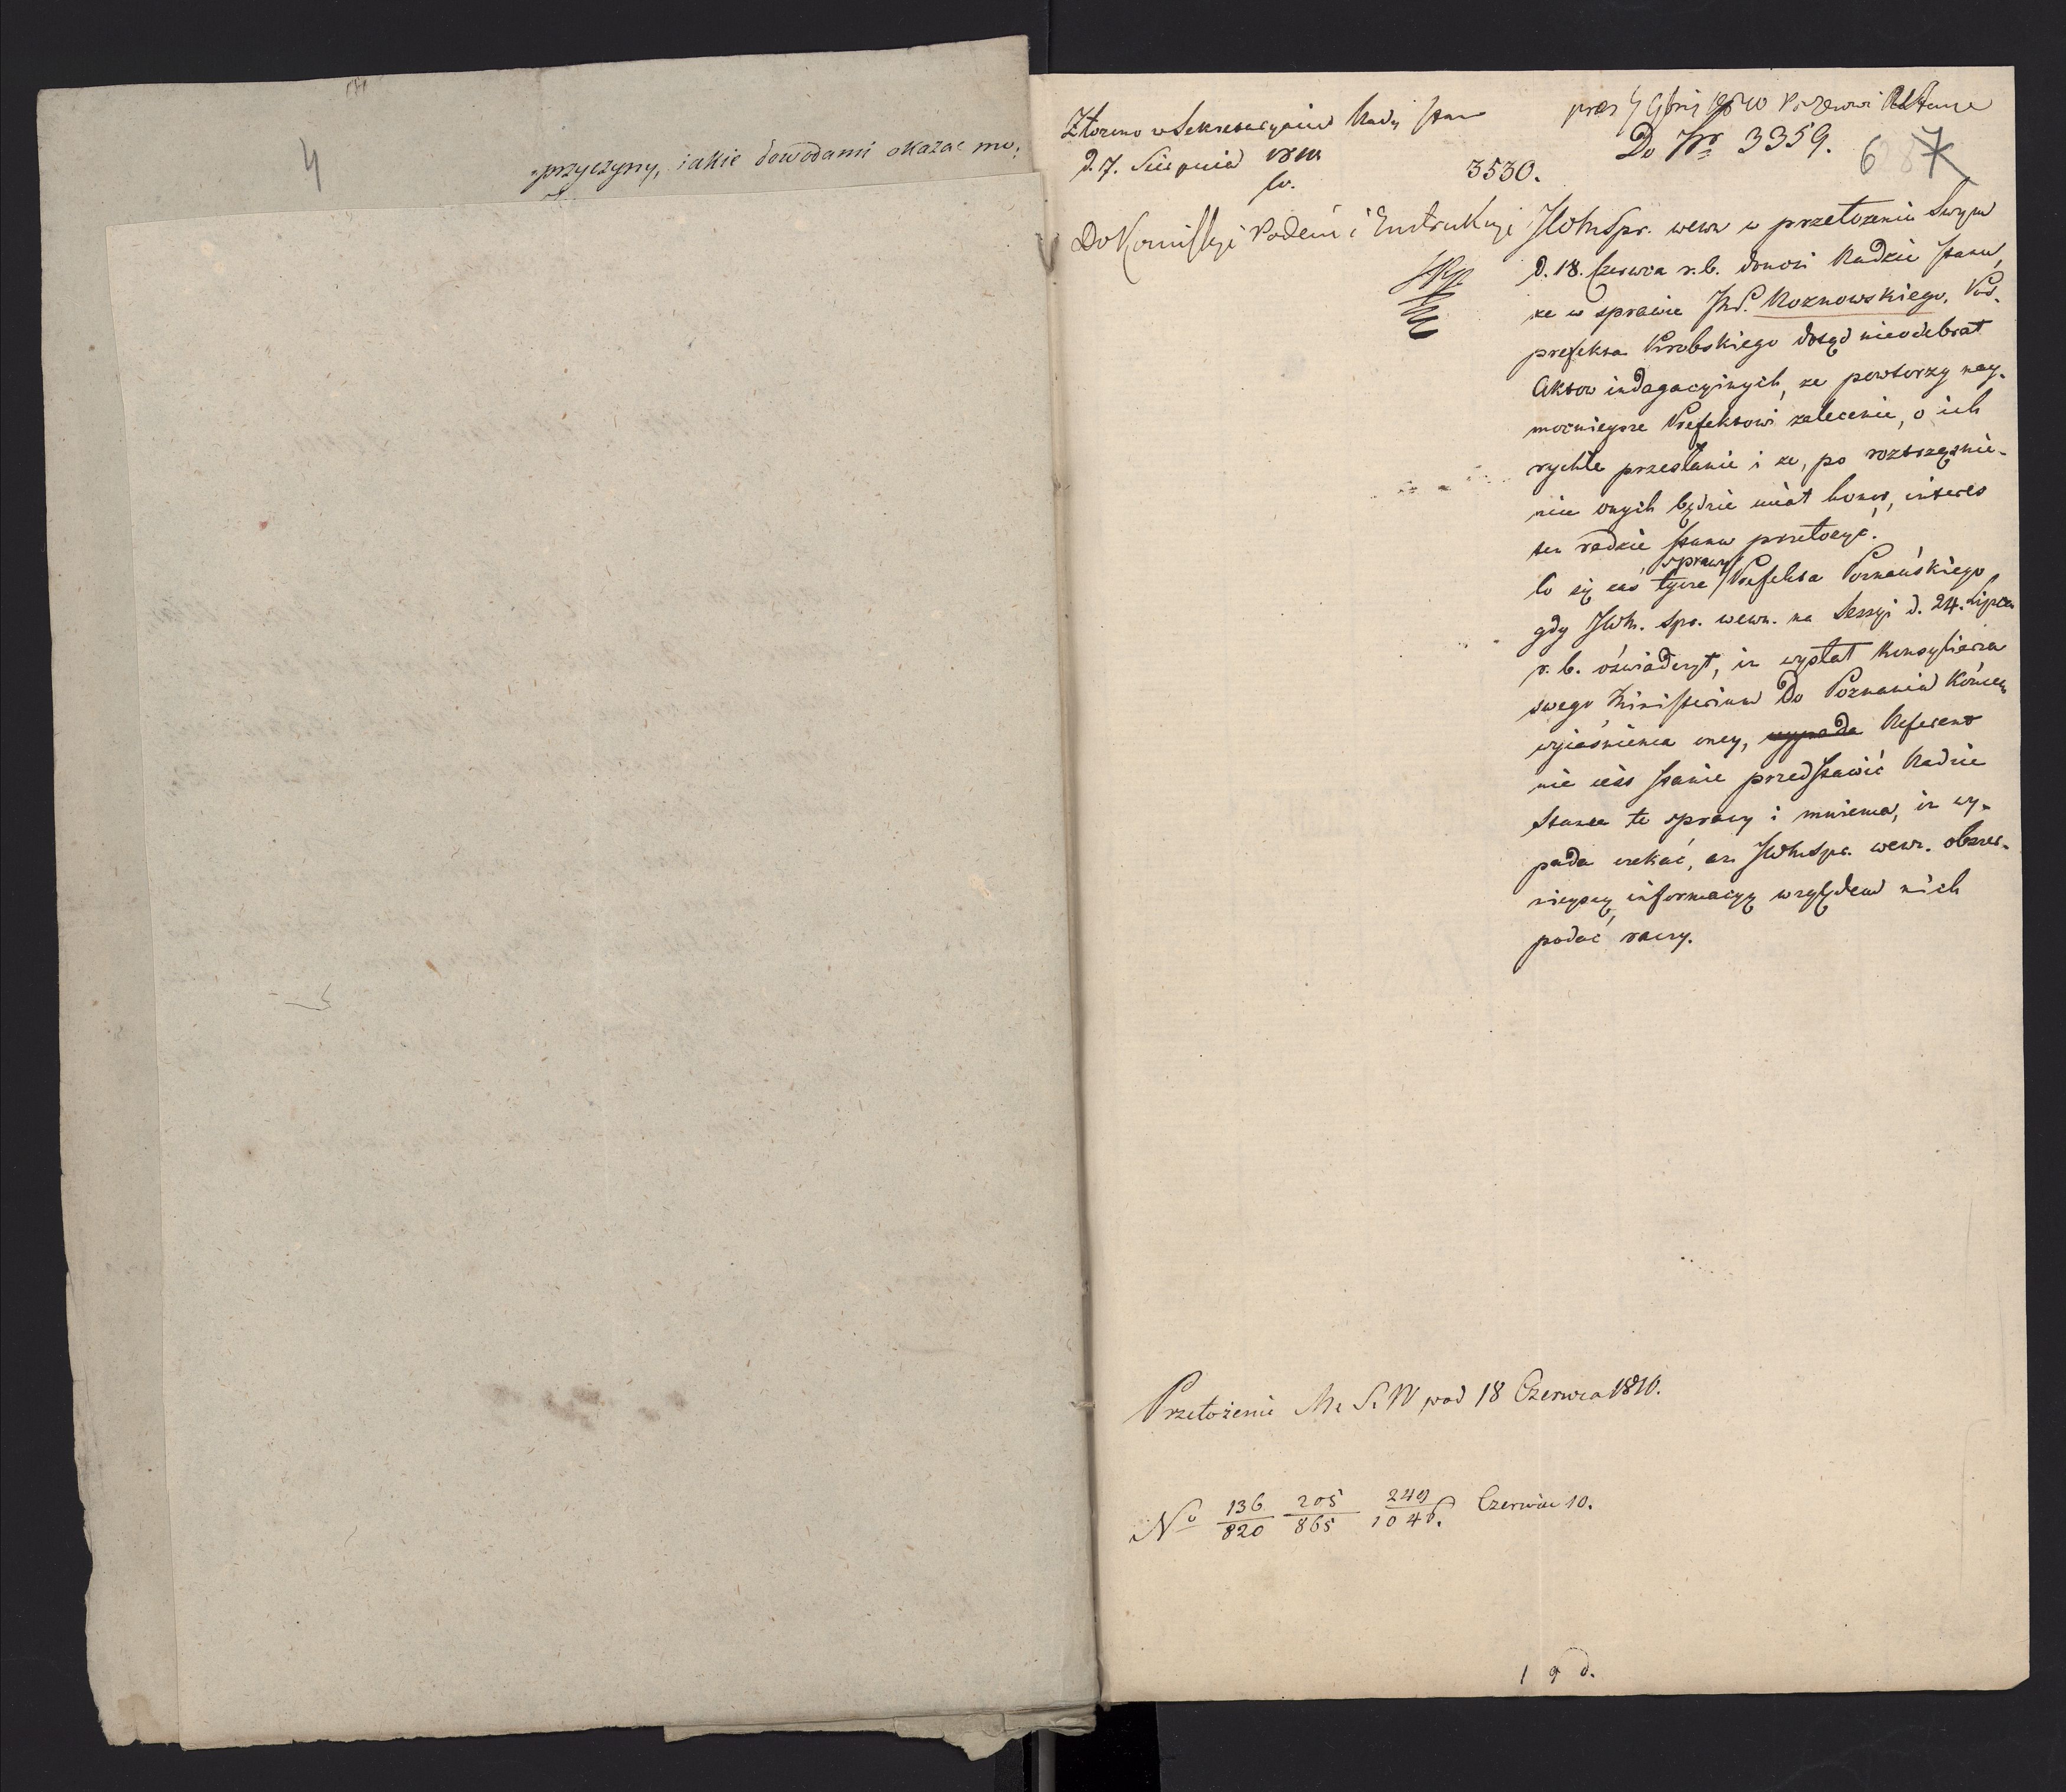 4
przyczyny, iakie dowodami okazac mo:
Złożono w Sekretaryacie Rady Stanu
d. 7. Sierpnia 1810
Do Kommissyi Podań i Instrukcyi
3530.
Do Nro 3359.
6 7
JWMSpr. wewn w przełożeniu Swym
d. 18. Czerwca r. b. donosi Radzie Stanu,
że w sprawie JP. Roznowskiego, Pod-
prefekta Krobskiego dotąd nieodebrał
Aktow indagacyinych, że powtorzy nay-
mocnieysze Prefektowi zalecenie, o ich
rychłe przesłanie i że, po roztrząśnie-
niu onych będzie miał honor, interes
ten radzie Stanu przełożyć.
Co się zaś tycze sprawy Prefekta Poznańskiego
gdy JWM. Spr. wewn. na Sessyi d. 24. Lipca
r. b. oświadczył, iż wysłał Konsyliarza
swego Ministerium Do Poznania Końcem
wyiaśnienia oney, wypada Referent
nie iest Stanie przedstawić Radzie
Stanu te sprawy i mniema, iż wy-
pada czekać, aż JWMSpr. wewn. obszer-
nieyszą informacyą względem nich
podać raczy.
Przełożenie M. S. W pod 18 Czerwca 1810.
No 136/820 205/865 249/1048. Czerwiec 10.